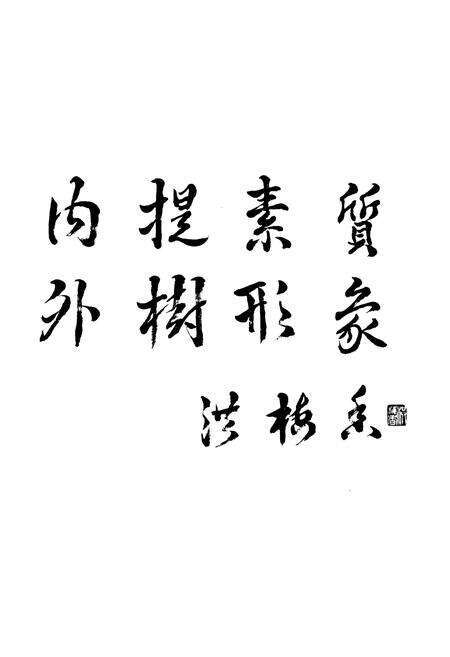 内提素質
外樹形象
洪梅香